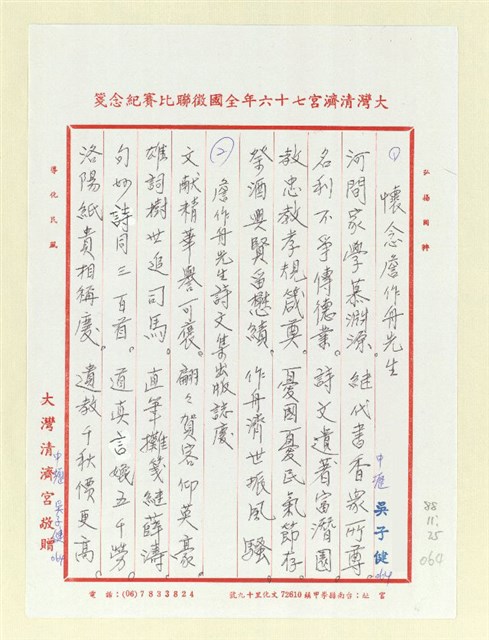 大灣清濟宮七十六年全國徵聯比賽紀念箋
弘揚國粹
① 懷念詹作舟先生
中壢 吳子健 064
河間家學慕淵源。繼代書香衆所尊
名利不爭傳德業。詩文遺著富潛園
教忠教孝規箴奠。憂國憂民氣節存
琴酒興賢留懋績。作舟濟世振風騷
② 詹作舟先生詩文集出版誌慶
文献精華譽可褒。翩々賀客仰英豪
雄詞樹世追司馬。直筆攤箋繼薛濤
句妙詩同三百首。道真言媲五千勞
洛陽紙貴相稱慶。遺教千秋價更高
導化民風
中壢 吳子健 064
大灣清濟宮敬贈
88 11. 25 064
宮址：台南縣學甲鎮72610文化里十九號
電話：(06)7833824